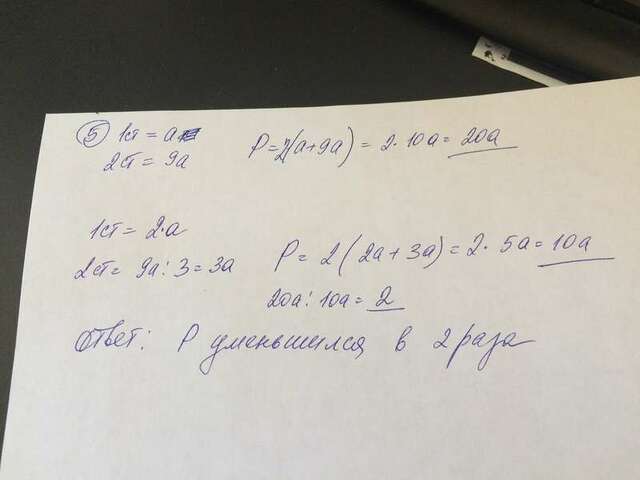 5 1ст = a
2ст = 9a
P=2(a+9a) = 2·10a= 20a
1ст= 2·a
2ст= 9a:3=3a
P= 2(2a+3a)=2·5a=10a
20a:10a=2
Ответ: P уменьшился в 2 раза